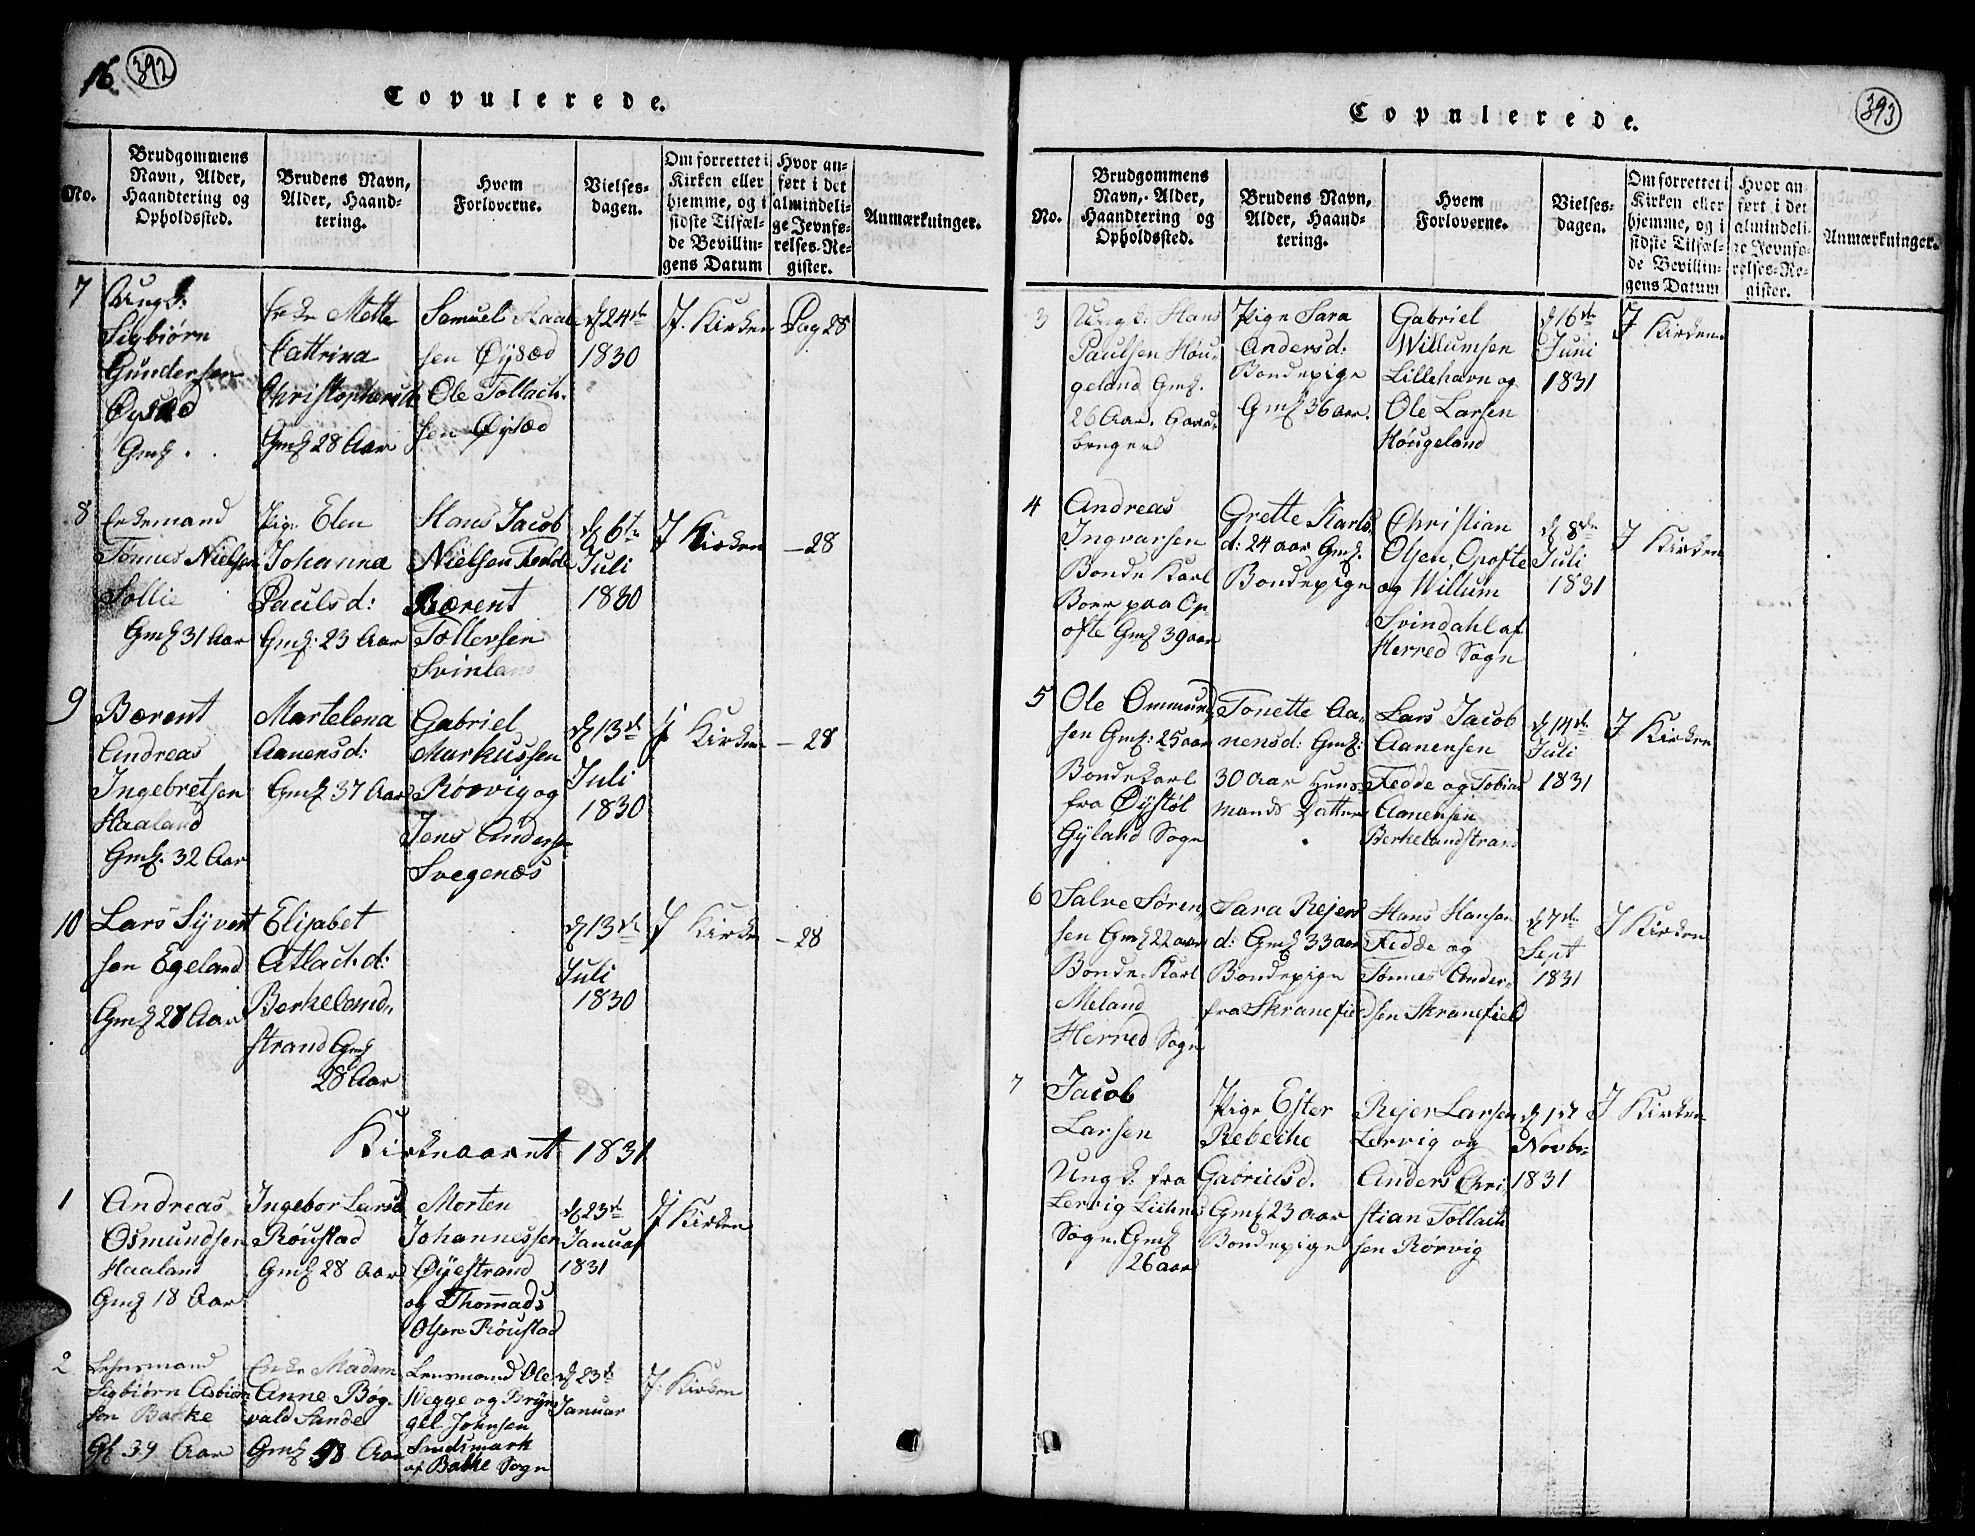 16 392
Copulerede.
No.
Brudgommens Navn, Alder, Haandtering og Opholdssted.
Brudens Navn, Alder, Haandtering.
Hvem Forloverne.
Vielsesdagen.
Om forrettet i Kirken eller hjemme, og i sidste Tilfælde Bevillingens Datum
Hvor anført i det almindelige Jevnførelses-Register.
Anmærkninger.
7
Ungk:
Sigbiørn
Gundersen
Øysæd
Gmf.
Enke Mette
Cattrina
Christophersd
Gmf 28 Aar
Samuel
sen Øysæd
Ole Tollach-
sen Øysæd
d 24de
1830
I Kirken
Pag 28
8
Enkemand
Tønnes Nielsen
Sollie
Gmf 31 Aar
Pige Elen
Johanna
Paulsd:
Gmf: 23 Aar
Hans Jacob
Nielsen Fedde
Bærent
Tollersen
Svinland
d 6te
Juli
1830
I Kirken
– 28
9
Bærent
Andreas
Ingebretsen
Haaland
Gmf. 32 Aar
Martelena
Aanensd:
Gmf 37 Aar
Gabriel
Markussen
Rørvig og
Jens Anderse
Svegenæs
d 13de
Juli
1830
I Kirken
– 28
10
Lars Syvert
sen Egeland
Gmf 28 Aar
Elisabet
Atlachd:
Berkeland-
strand Gmf
28 Aar
d 13de
Juli
1830
I Kirken
– 28
Kirkeaaret 1831
1
Andreas
Osmundsen
Haaland
Gmf 18 Aar
Ingebor Larsd
Røustad
Gmf 28 Aar
Morten
Johannessen
Øyestrand
og Thommads
Olsen Røustad
d 23de
Januar
1831
I Kirken
2
Lehnsmand
Sigbiørn Asbiørn
sen Bakke
Gf 39 Aar
Enke Madam
Anne Bøg-
vald Sande
Gmf Aar
Lensmand Ole
Wegge og Bryn
gel Johnsen
Sindsmark
af Bakke Sogn
d 23de
Januar
I Kirken
393
Copulerede.
No.
Brudgommens Navn, Alder, Haandtering og Opholdssted.
Brudens Navn, Alder, Haandtering.
Hvem Forloverne.
Vielsesdagen.
Om forrettet i Kirken eller hjemme, og i sidste Tilfælde Bevillingens Datum
Hvor anført i det almindelige Jevnførelses-Register.
Anmærkninger.
3
Ungk: Hans
Paulsen Høu-
geland Gmf.
26 Aar. Gaard-
bruger
Pige Sara
Andersd:
Bondepige
Gmf 36 aar.
Gabriel
Willumsen
Lillehavn og
Ole Larsen
Høugeland
d 16de
Juni
1831
I Kirken
4
Andreas
Ingvarsen
Bonde Karl
Boer paa Op-
ofte Gmf 39 aar
Grette Karls
d: 24 aar Gmf.
Bondepige
Christian
Olsen Opofte
og Willum
Svindahl af
Herred Sogn
d 8de
Juli
1831
I Kirken
5
Ole Ommund
sen Gmf: 25 aar
Bondekarl
fra Øystøl
Gyland Sogn
Tonette Aa-
nensd: Gmf:
30 Aar Huus-
mands Datter
Lars Jacob
Aanensen
Fedde og Tobias
Aanensen
Berkelandstrand
d 14de
Juli
1831
I Kirken
6
Salve Søren
sen Gmf 22 aar
Bonde-Karl
Meland
Herred Sogn
Sara Rejers
d: Gmf 33 aar
Bondepige
fra Skranefield
Hans Hansen
Fedde og
Tønnes Ander-
sen Skranefield
d 7de
Sept
1831
I Kirken
7
Jacob
Larsen
Ungk: fra
Lervig
Sogn. Gmf
26 aar
Pige Ester
Rebeike
Gabrielsd.
Gmf 23 aar
Bondepige
Rejer Larsen
Lervig og
Anders Chri-
stian Tollach
sen Rørvig
d 1st
Novbr
1831
I Kirken